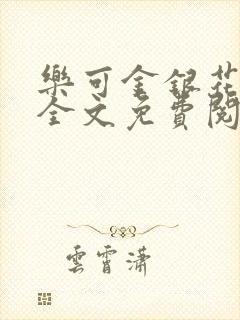 樂可金銀花
全文免費閱
雲霄瀟